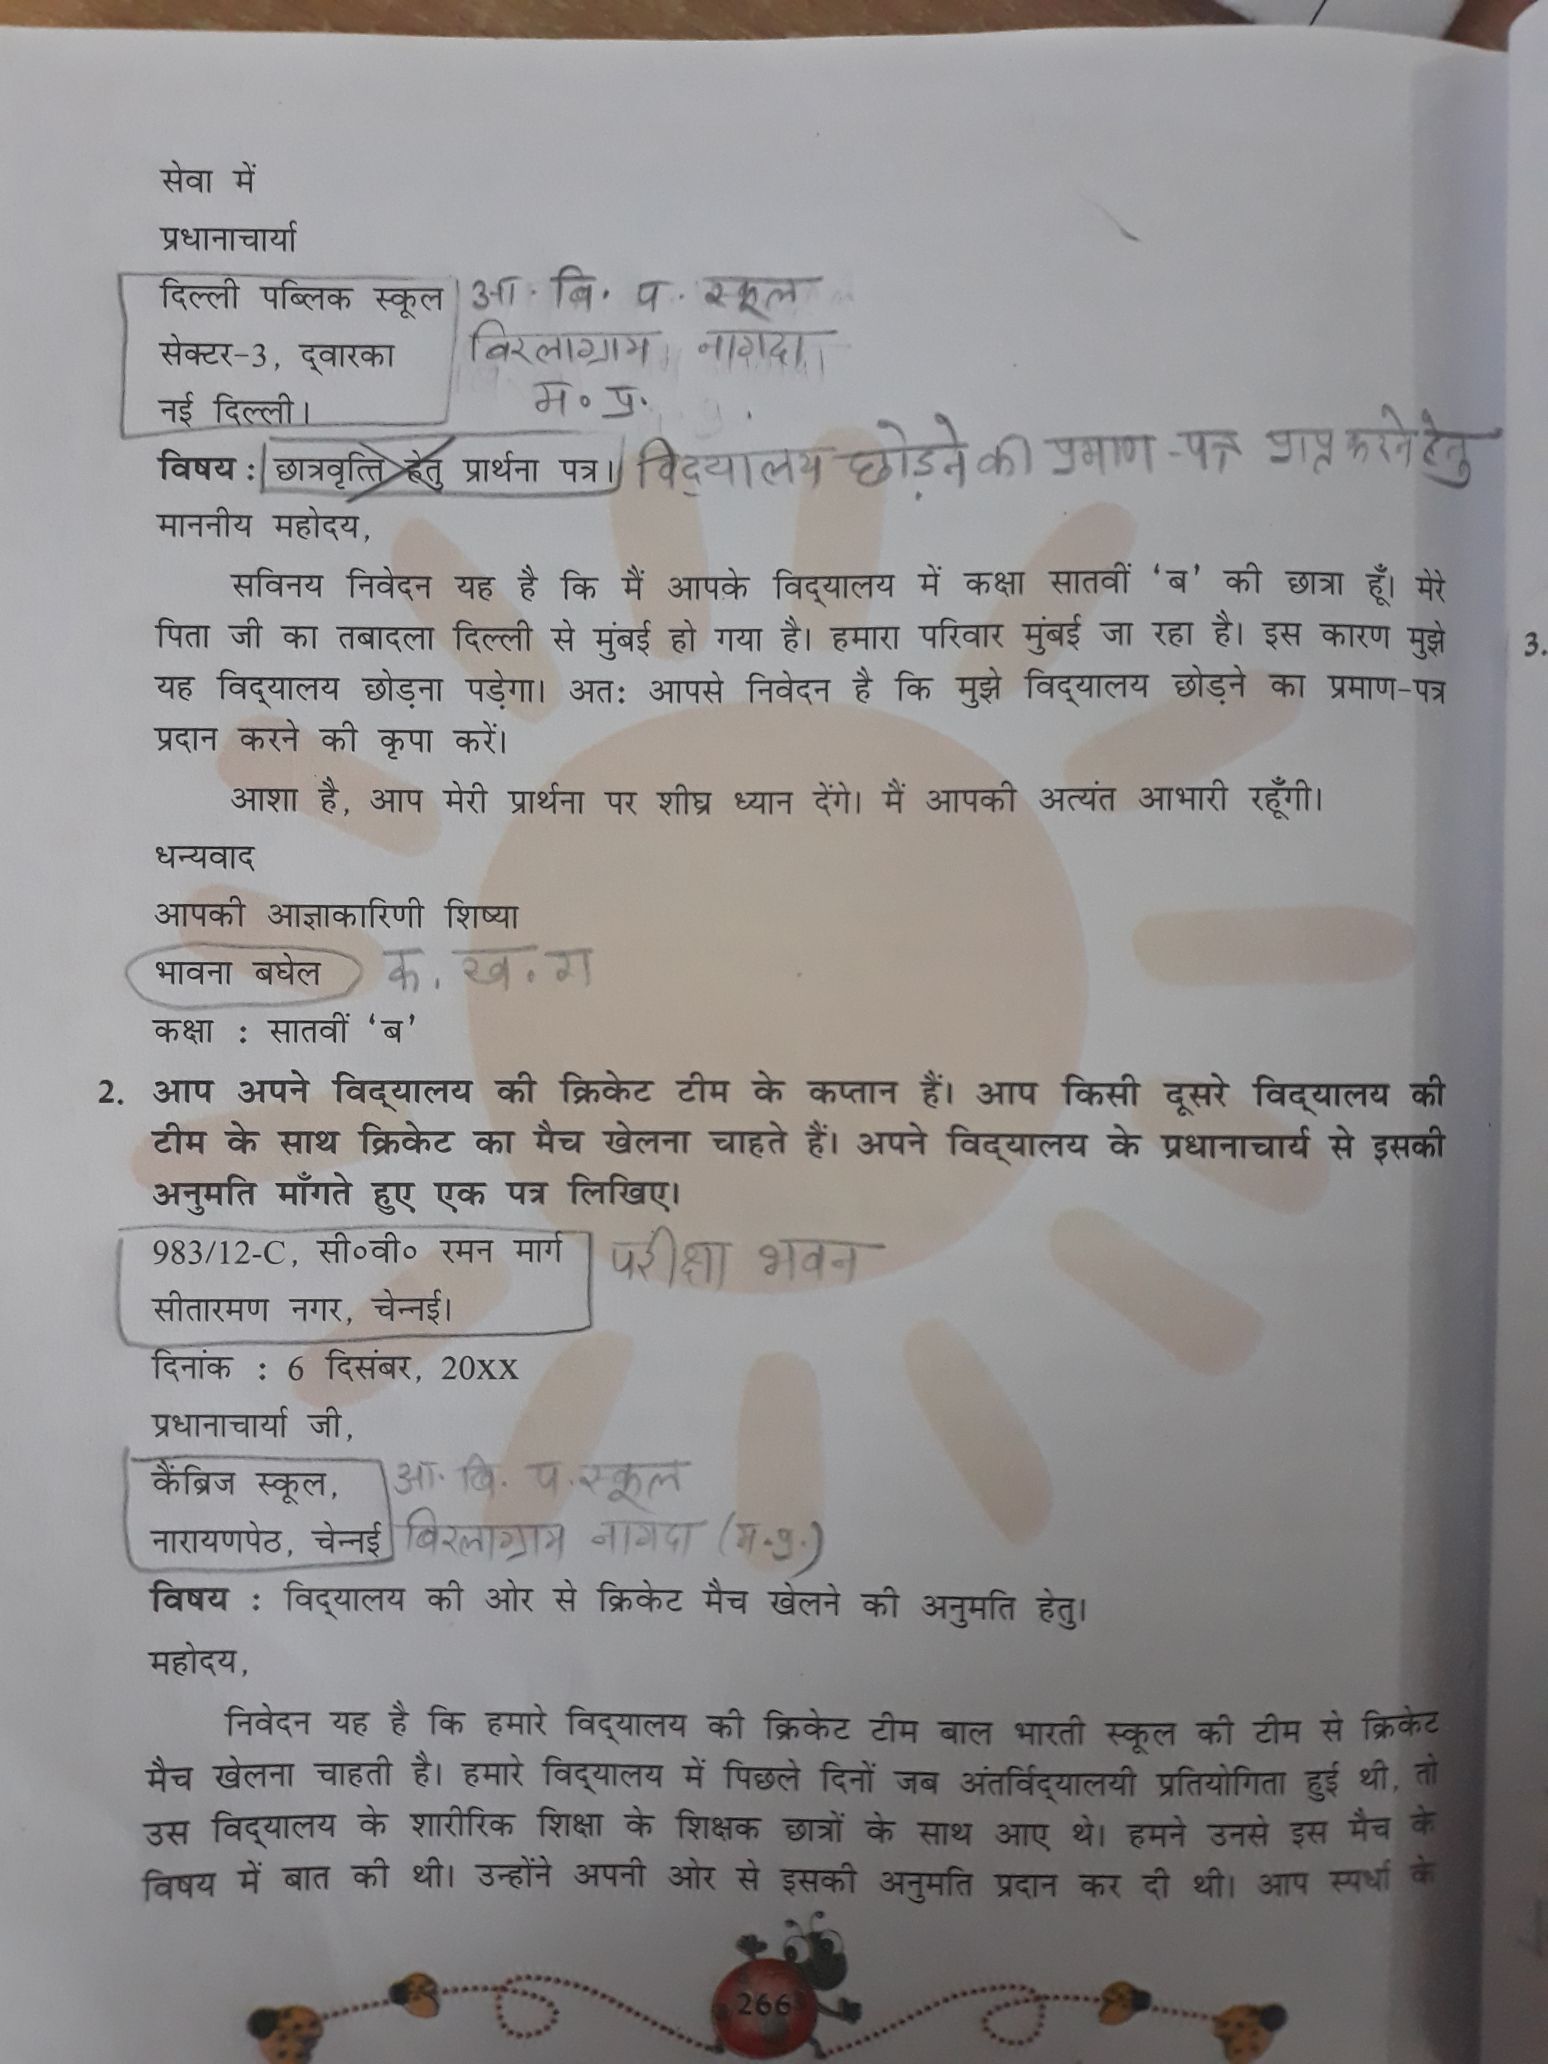 सेवा में
प्रधानाचार्या
दिल्ली पब्लिक स्कूल आ. बि. प. स्कूल
सेक्टर-3, द्वारका बिरलाग्राम नागदा
नई दिल्ली। म० प्र.
विषय : छात्रवृत्ति हेतु प्रार्थना पत्र। विद्यालय छोड़ने की प्रमाण-पत्र प्राप्त करने हेतु
माननीय महोदय,
सविनय निवेदन यह है कि मैं आपके विद्यालय में कक्षा सातवीं ‘ब’ की छात्रा हूँ। मेरे
पिता जी का तबादला दिल्ली से मुंबई हो गया है। हमारा परिवार मुंबई जा रहा है। इस कारण मुझे
यह विद्यालय छोड़ना पड़ेगा। अतः आपसे निवेदन है कि मुझे विद्यालय छोड़ने का प्रमाण-पत्र
प्रदान करने की कृपा करें।
आशा है, आप मेरी प्रार्थना पर शीघ्र ध्यान देंगे। मैं आपकी अत्यंत आभारी रहूँगी।
धन्यवाद
आपकी आज्ञाकारिणी शिष्या
भावना बघेल क. ख. ग
कक्षा : सातवीं ‘ब’
2. आप अपने विद्यालय की क्रिकेट टीम के कप्तान हैं। आप किसी दूसरे विद्यालय की
टीम के साथ क्रिकेट का मैच खेलना चाहते हैं। अपने विद्यालय के प्रधानाचार्य से इसकी
अनुमति माँगते हुए एक पत्र लिखिए।
983/12-C, सी०वी० रमन मार्ग परीक्षा भवन
सीतारमण नगर, चेन्नई।
दिनांक : 6 दिसंबर, 20XX
प्रधानाचार्या जी,
कैंब्रिज स्कूल, आ. बि. प. स्कूल
नारायणपेठ, चेन्नई बिरलाग्राम नागदा (म.प्र.)
विषय : विद्यालय की ओर से क्रिकेट मैच खेलने की अनुमति हेतु।
महोदय,
निवेदन यह है कि हमारे विद्यालय की क्रिकेट टीम बाल भारती स्कूल की टीम से क्रिकेट
मैच खेलना चाहती है। हमारे विद्यालय में पिछले दिनों जब अंतर्विद्यालयी प्रतियोगिता हुई थी, तो
उस विद्यालय के शारीरिक शिक्षा के शिक्षक छात्रों के साथ आए थे। हमने उनसे इस मैच के
विषय में बात की थी। उन्होंने अपनी ओर से इसकी अनुमति प्रदान कर दी थी। आप स्पर्धा के
266
3.